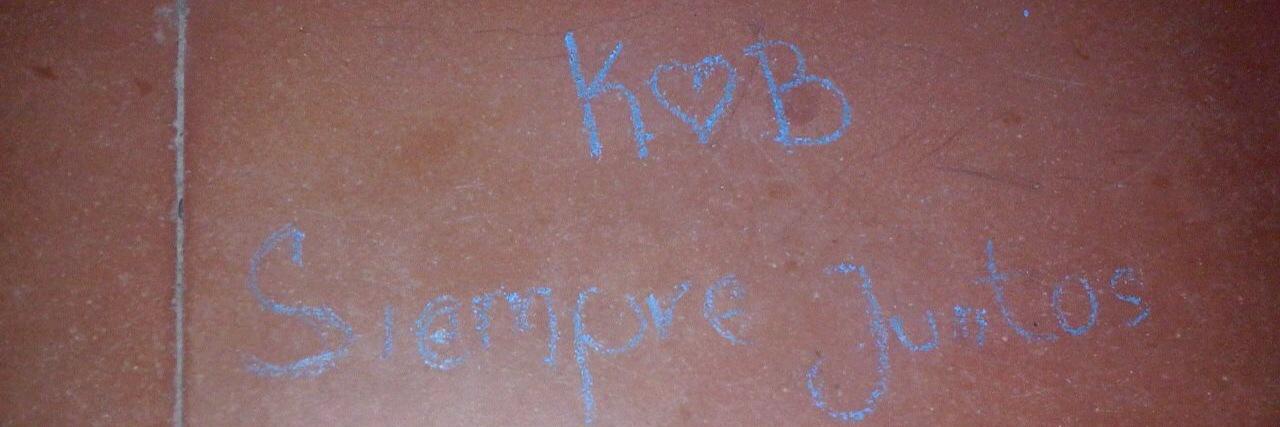 K♡B
Siempre Juntos